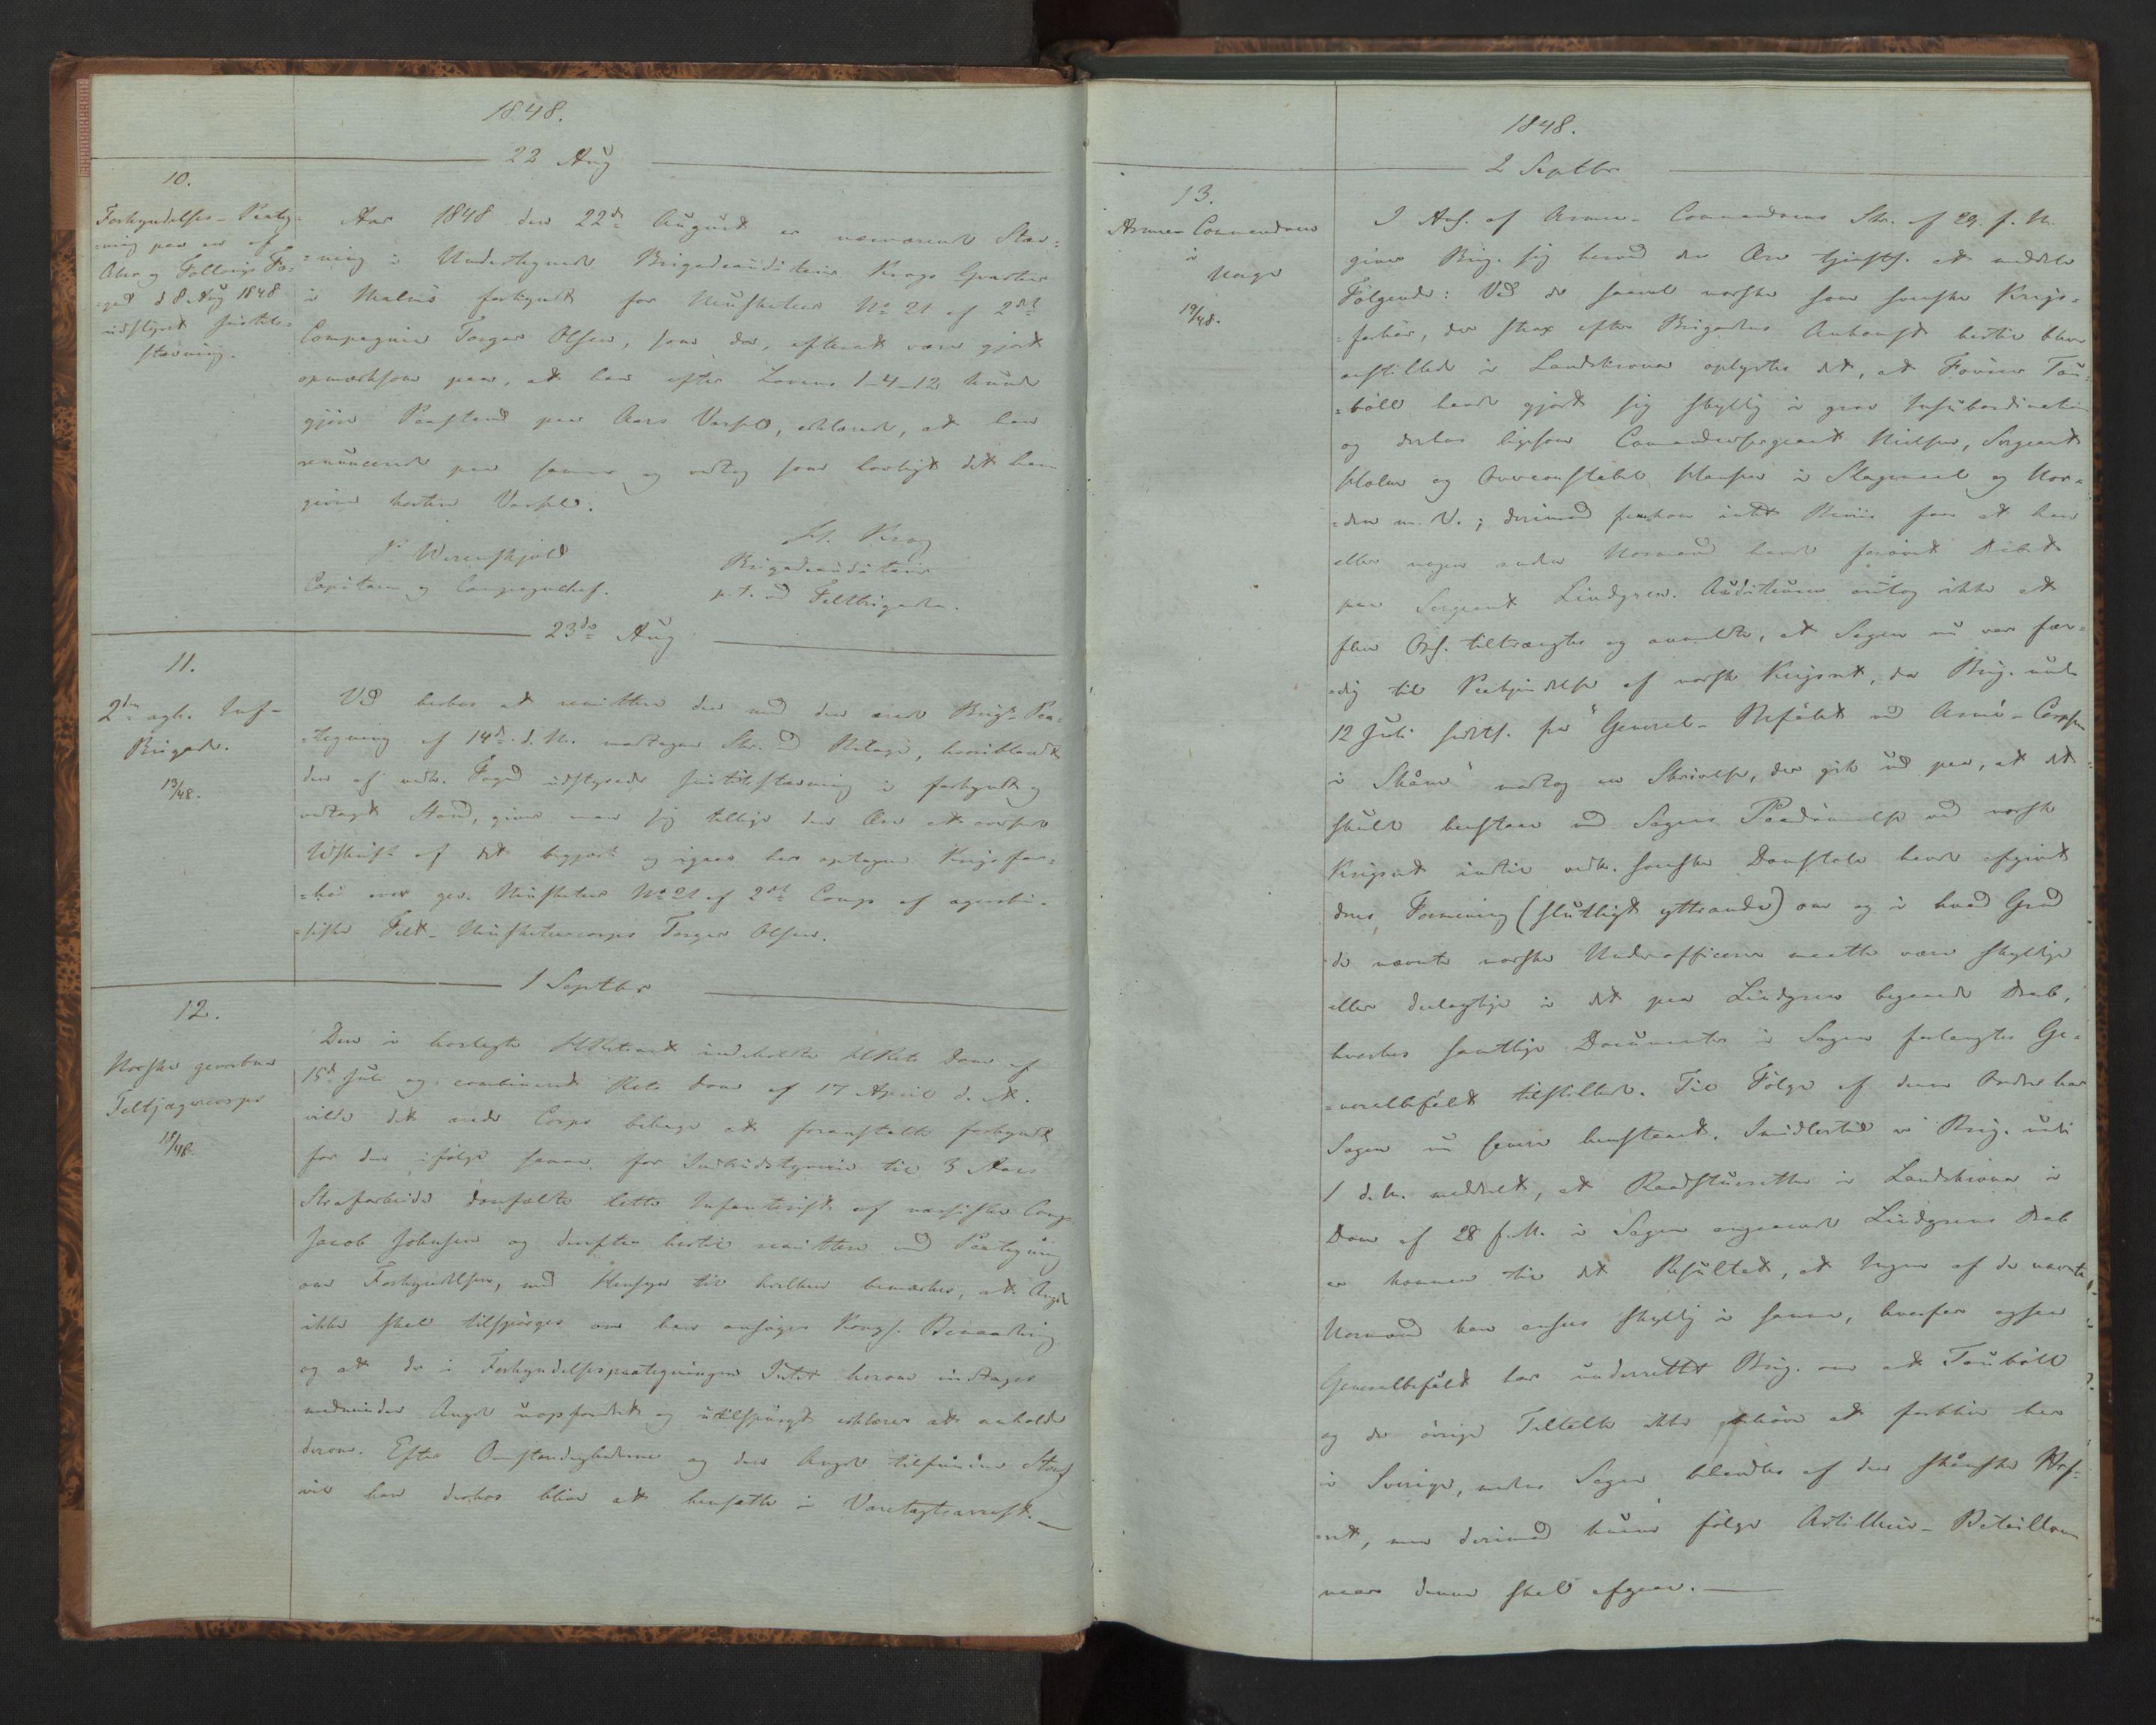 1848.
22 Aug
10.
Forkyndelses-Paateg-
ning paa en af
Aker og Follougs Fo-
ged d 8 Aug 1848
udstyret Justits-
stævning.
Aar 1848 den 22de August er nærværende Stæv-
=ning i Undertegnede Brigadeauditeur Krags Qvarteer
i Malmö forkyndt for Musketeer No 21 af 2det
Compagnie Torger Olsen, som der, efterat være gjort
opmærksom paa, at han efter Lovens 1-4-12 kunde
gjöre Paastand paa Aars Varsel, erklærede, at han
renuncerede paa samme og vedtog som lovligt det ham
givne kortere Varsel.
P. Werenskjold
Capitain og Compagnichef.
H. Krag
Brigadeauditeur
p. t. ved Feltbrigaden.
23de Aug
11.
2den agh. Inf-
Brigade.
13/48.
Ved herhos at remittere den med den ærede Brigs Paa-
=tegning af 14de d. M. modtagne Skr. med Bilage, hvoriblandt
den af vedk. Foged udstyrede Justitsstævning i forkyndt og
vedtaget Stand, giver man sig tillige den Ære at oversende
Udskrift af det begjærte og igaar her optagne Krigsfor-
=hör over gev. Musketeer No 21 af 2det Comp af agershu-
=siske Felt-Musketeercorps Torger Olsen.
1 Septbr
12.
Norske gevorbne
Feltjægercorps
18/48.
Den i hoslagte HRetsact indeholdte HRets Dom af
15de Juli og combinerede Rets Dom af 17 April d. A.
vilde det ærede Corps behage at foranstalte forkyndt
for den ifölge samme for Indbrudstyverie til 3 Aars
Strafarbeide domfældte lette Infanterist af nærsiske Comp
Jacob Johnsen og derefter hertil remittere med Paategning
om Forkyndelsen, med Hensyn til hvilken bemærkes, at Angle
ikke skal tilspörges om han ansöger Kongl. Benaadning
og at der i Forkyndelsespaategningen Intet herom indtages
medmindre Angle uopfordret og utilspurgt erklærer at anholde
derom. Efter Omstændighederne og den Angle tilfundne Straf
vil han derhos blive at hensætte i Varetægtsarrest.
1848.
2 Septbr
13.
Armee-Commandoen
i
Norge
19/48.
I Anl. af Armee-Commandoens Skr. af 29. f. M.
giver Brig. sig herved den Ære tjenstl. at meddele
Fölgende: Ved de saavel norske som svenske Krigs-
=forhör, der strax efter Brigadens Ankomst hertil blev
anstillede i Landskrona oplystes det, at Fourer Tau-
=böll havde gjort sig skyldig i grov Insubordination
og derhos ligesom Comandeersergeant Nielsen, Sergeant
Holm og Overconstabel Hansen i Slagsmaal og Uor-
=den m. V.; derimod fremkom intet Beviis for at han
eller nogen anden Normand havde forövet Drabet
paa Sergeant Lindgren. Auditeuren antog ikke at
flere Opl. tiltrængtes og anmeldte, at Sagen nu var fær-
=dig til Paakjendelse af norsk Krigsret, da Brig. under
12 Juli sidstl. fra "General-Befälet ved Armé-Corpsen
i Skåne" modtog en Skrivelse, der gik ud paa, at det
skulde henstaae med Sagens Paadömmelse ved norsk
Krigsret indtil vedk. svenske Domstole havde afgivet
deres Formening (slutligt yttrande) om og i hvad Grad
de nævnte norske Underofficerer maatte være skyldige
eller deelagtige i det paa Lindgren begaaede Drab,
hvorhos samtlige Documenter i Sagen forlangtes Ge-
=neralbefälet tilstillede. Til Fölge af denne Ordre har
Sagen nu senere henstaaet. Imidlertid er Brig. under
1 d. M. meddelt, at Raadstueretten i Landskrona i
Dom af 28 f. M. i Sagen angaaende Lindgrens Drab
er kommen til det Resultat, at Ingen af de nævnte
Normænd kan ansees skyldig i samme, hvorfor ogsaa
Generalbefälet har underrettet Brig. om at Tauböll
og de övrige Tiltalte ikke behöve at forblive her
i Sverige, medens Sagen behandles af den skånske Hof-
=ret, men derimod kunne fölge Artillerie-Batailloen
naar denne skal afgaae.